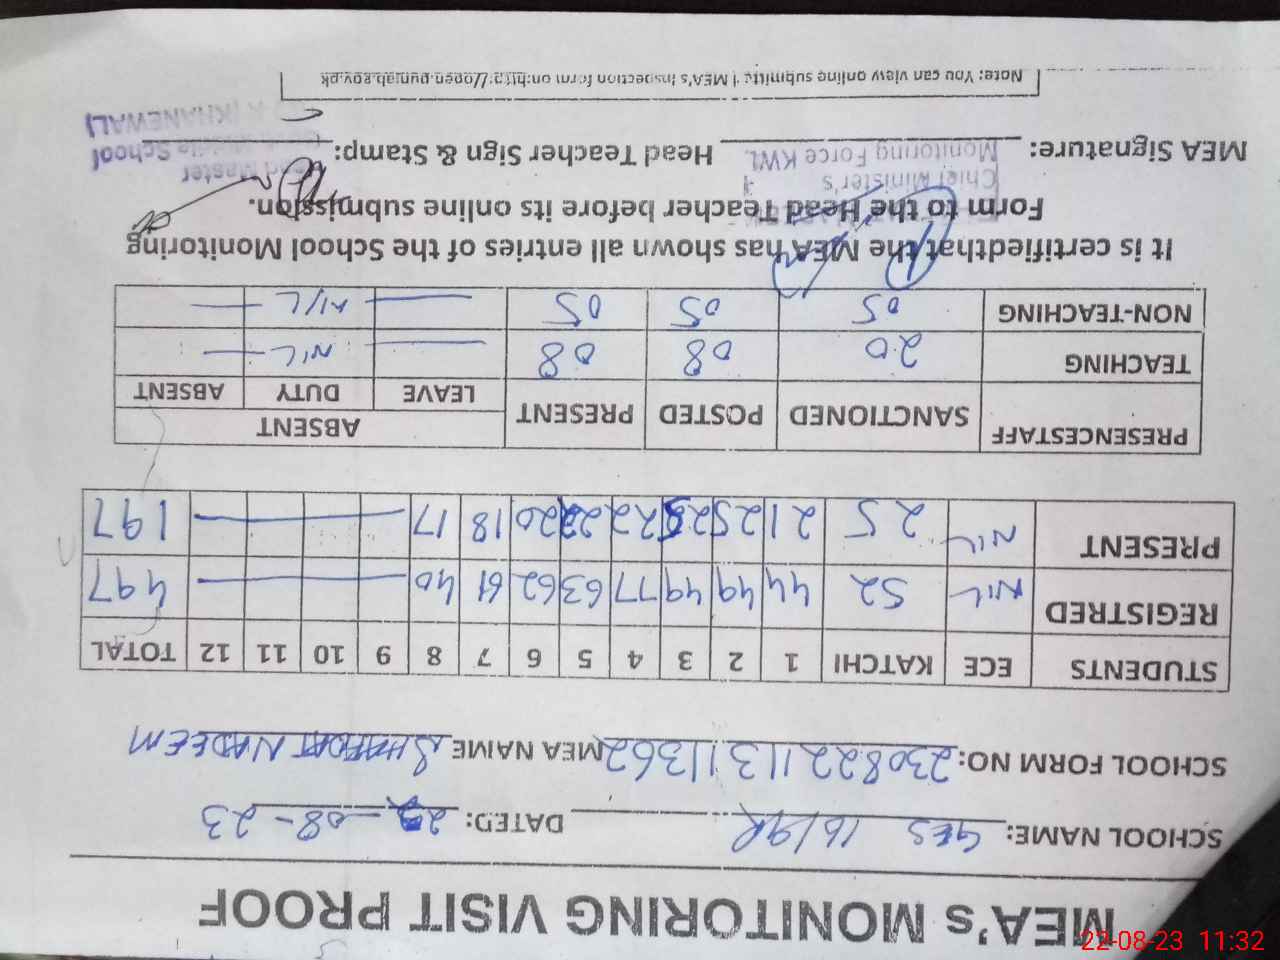 MEA's MONITORING VISIT PROOF
SCHOOL NAME: GES 16/9R DATED: 22-08-23
SCHOOL FORM NO: 230822113111362 MEA NAME SHAFQAT NADEEM
STUDENTS ECE KATCHI 1 2 3 4 5 6 7 8 9 10 11 12 TOTAL
REGISTRED NIL 52 44 49 49 77 63 62 61 40 — 497
PRESENT NIL 25 21 25 25 22 22 20 18 17 — 197
PRESENCESTAFF SANCTIONED POSTED PRESENT ABSENT
LEAVE DUTY ABSENT
TEACHING 20 08 08 — NIL —
NON-TEACHING 05 05 05 — NIL —
It is certifiedthat the MEA has shown all entries of the School Monitoring
Form to the Head Teacher before its online submission.
Chief Minister's
Monitoring Force KWL
Head Master
Middle School
(KHANEWAL)
MEA Signature: Head Teacher Sign & Stamp:
Note: You can view online submitted MEA's inspection form on:http://open.punjab.gov.pk
22-08-23 11:32